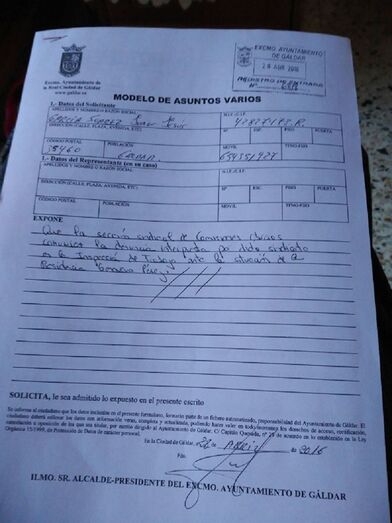 Excmo. Ayuntamiento de
la Real Ciudad de Gáldar
www.galdar.es
EXCMO. AYUNTAMIENTO
DE GÁLDAR
28 ABR 2016
REGISTRO DE ENTRADA
Nº
MODELO DE ASUNTOS VARIOS
1.- Datos del Solicitante
APELLIDOS Y NOMBRE O RAZÓN SOCIAL
N.I.F./C.I.F.
DIRECCIÓN (CALLE, PLAZA, AVENIDA, ETC)
Nº
ESC.
PISO
PUERTA
CÓDIGO POSTAL
POBLACIÓN
MÓVIL
TFNO-FIJO
35460
1.- Datos del Representante (en su caso)
APELLIDOS Y NOMBRE O RAZÓN SOCIAL
N.I.F./C.I.F.
DIRECCIÓN (CALLE, PLAZA, AVENIDA, ETC)
Nº
ESC.
PISO
PUERTA
CÓDIGO POSTAL
POBLACIÓN
MÓVIL
TFNO-FIJO
EXPONE
Que la sección sindical de Comisiones Obreras
comunica la denuncia interpuesta por dicho sindicato
en la Inspección de Trabajo ante la situación de la
Residencia Pérez
SOLICITA, le sea admitido lo expuesto en el presente escrito
Se informa al ciudadano que los datos incluidos en el presente formulario, formarán parte de un fichero automatizado, responsabilidad del Ayuntamiento de Gáldar. El
ciudadano deberá rellenar los datos con información veraz, completa y actualizada, pudiendo hacer valer en todo momento los derechos de acceso, rectificación,
cancelación u oposición de los que sea titular, por escrito dirigido al Ayuntamiento de Gáldar, C/ Capitán Quesada, nº 29 de acuerdo en lo establecido en la Ley
Orgánica 15/1999, de Protección de Datos de carácter personal.
En la Ciudad de Gáldar, 28 de Abril de 2016
Fdo.
ILMO. SR. ALCALDE-PRESIDENTE DEL EXCMO. AYUNTAMIENTO DE GÁLDAR